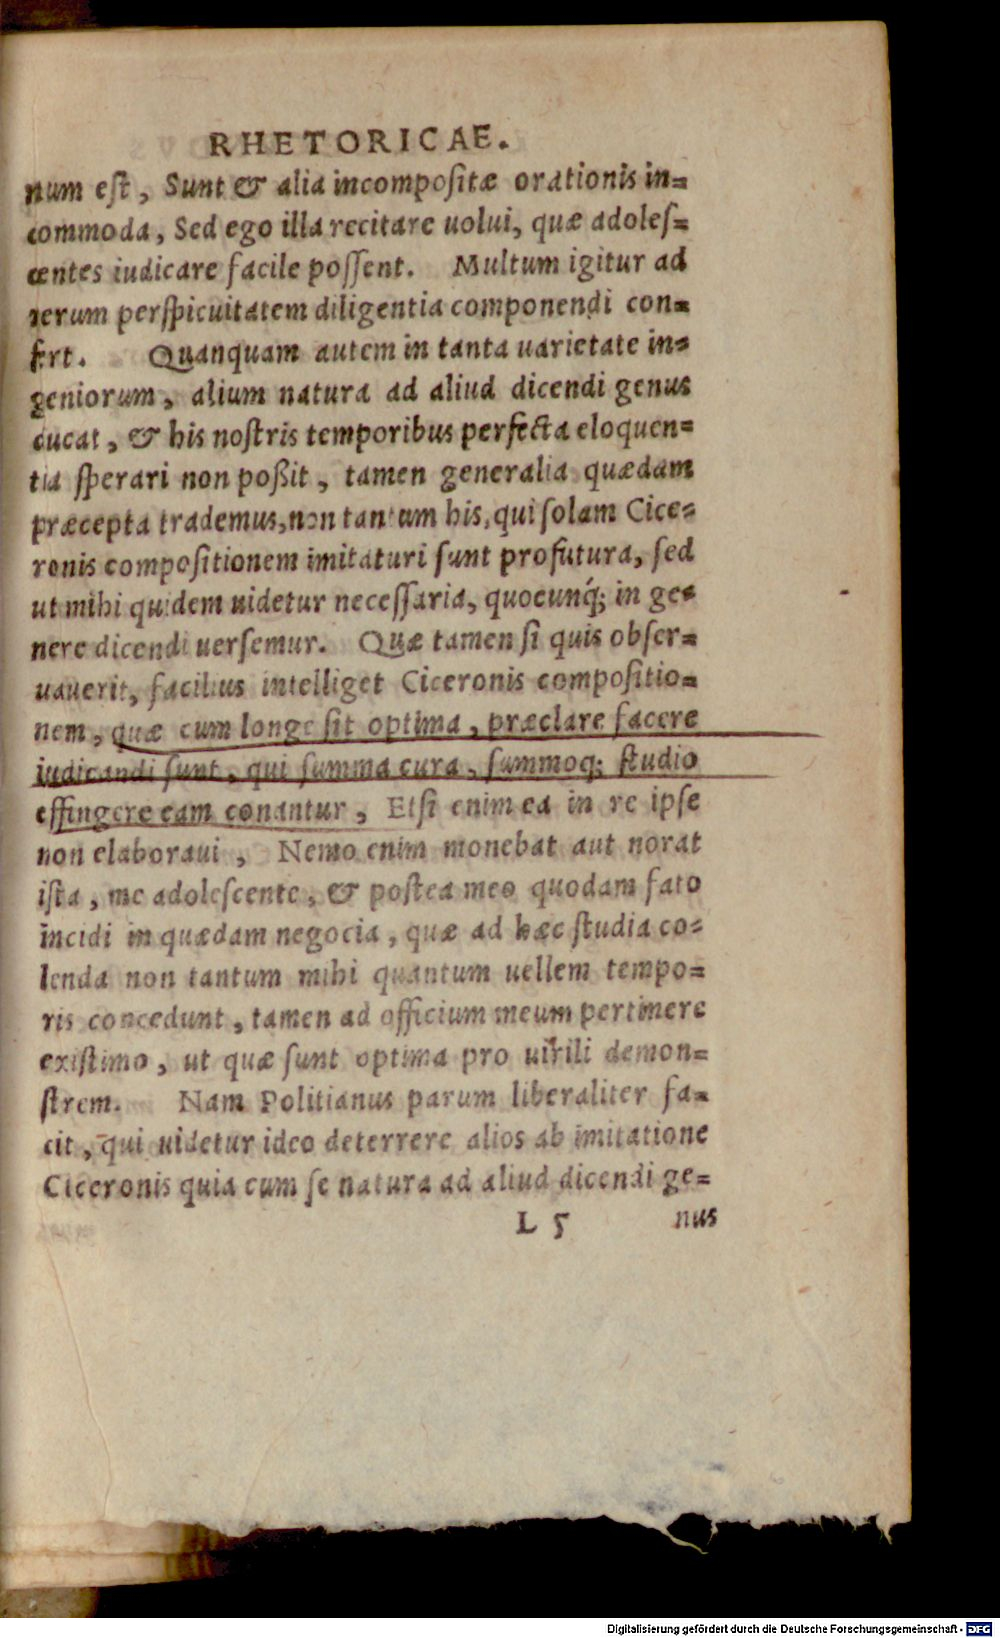 RHETORICAE.
num eſt, Sunt & alia incompoſitæ orationis in=
commoda, Sed ego illa recitare uolui, quæ adoleſ=
centes iudicare facile poſſent. Multum igitur ad
rerum perſpicuitatem diligentia componendi con=
fert. Quanquam autem in tanta uarietate in=
geniorum, alium natura ad aliud dicendi genus
ducat, & his noſtris temporibus perfecta eloquen=
tia ſperari non poßit, tamen generalia quædam
præcepta trademus, non tantum his, qui ſolam Cice=
ronis compoſitionem imitaturi ſunt profutura, ſed
ut mihi quidem uidetur neceſſaria, quocunq́; in ge=
nere dicendi uerſemur. Quæ tamen ſi quis obſer=
uauerit, facilius intelliget Ciceronis compoſitio=
nem, quæ cum longe ſit optima, præclare facere
iudicandi ſunt, qui ſumma cura, ſummoq; ſtudio
effingere eam conantur, Etſi enim ea in re ipſe
non elaboraui, Nemo enim monebat aut norat
iſta, me adoleſcente, & poſtea meo quodam fato
incidi in quædam negocia, quæ ad hæc ſtudia co=
lenda non tantum mihi quantum uellem tempo=
ris concedunt, tamen ad officium meum pertinere
exiſtimo, ut quæ ſunt optima pro uirili demon=
ſtrem. Nam Politianus parum liberaliter fa=
cit, qui uidetur ideo deterrere alios ab imitatione
Ciceronis quia cum ſe natura ad aliud dicendi ge=
L 5 nus
Digitalisierung gefördert durch die Deutsche Forschungsgemeinschaft - DFG